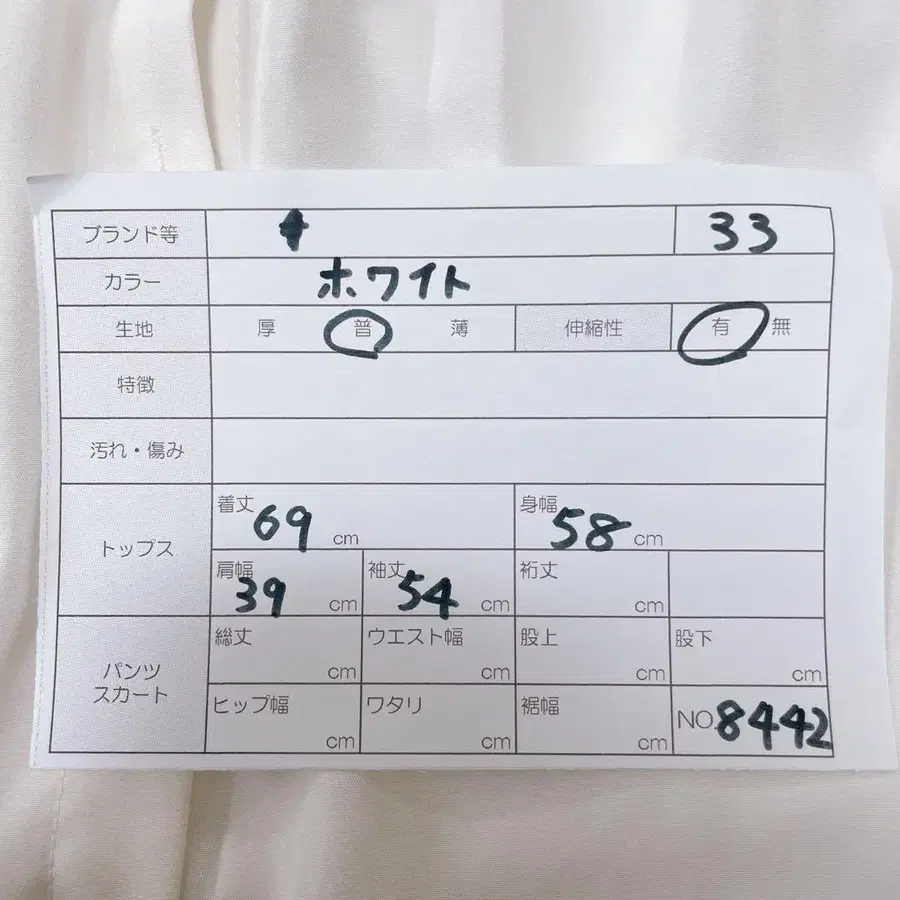 ブランド等 33
カラー ホワイト
生地 厚 普 薄 伸縮性 有 無
特徴
汚れ・傷み
トップス
着丈 69 cm 身幅 58 cm
肩幅 39 cm 袖丈 54 cm 裄丈 cm
パンツ
スカート
総丈 cm ウエスト幅 cm 股上 cm 股下 cm
ヒップ幅 cm ワタリ cm 裾幅 cm NO.8442